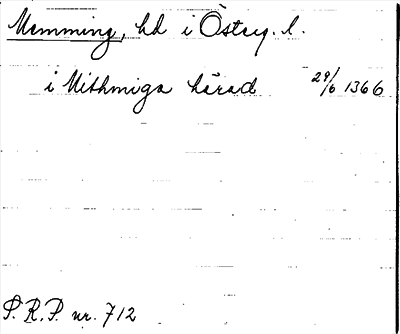 Memming, hd i Österg. l.
i Mithmiga härad 29/6 1366
S.R.P. nr. 712